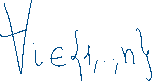 ∀i∈{1,..,n}